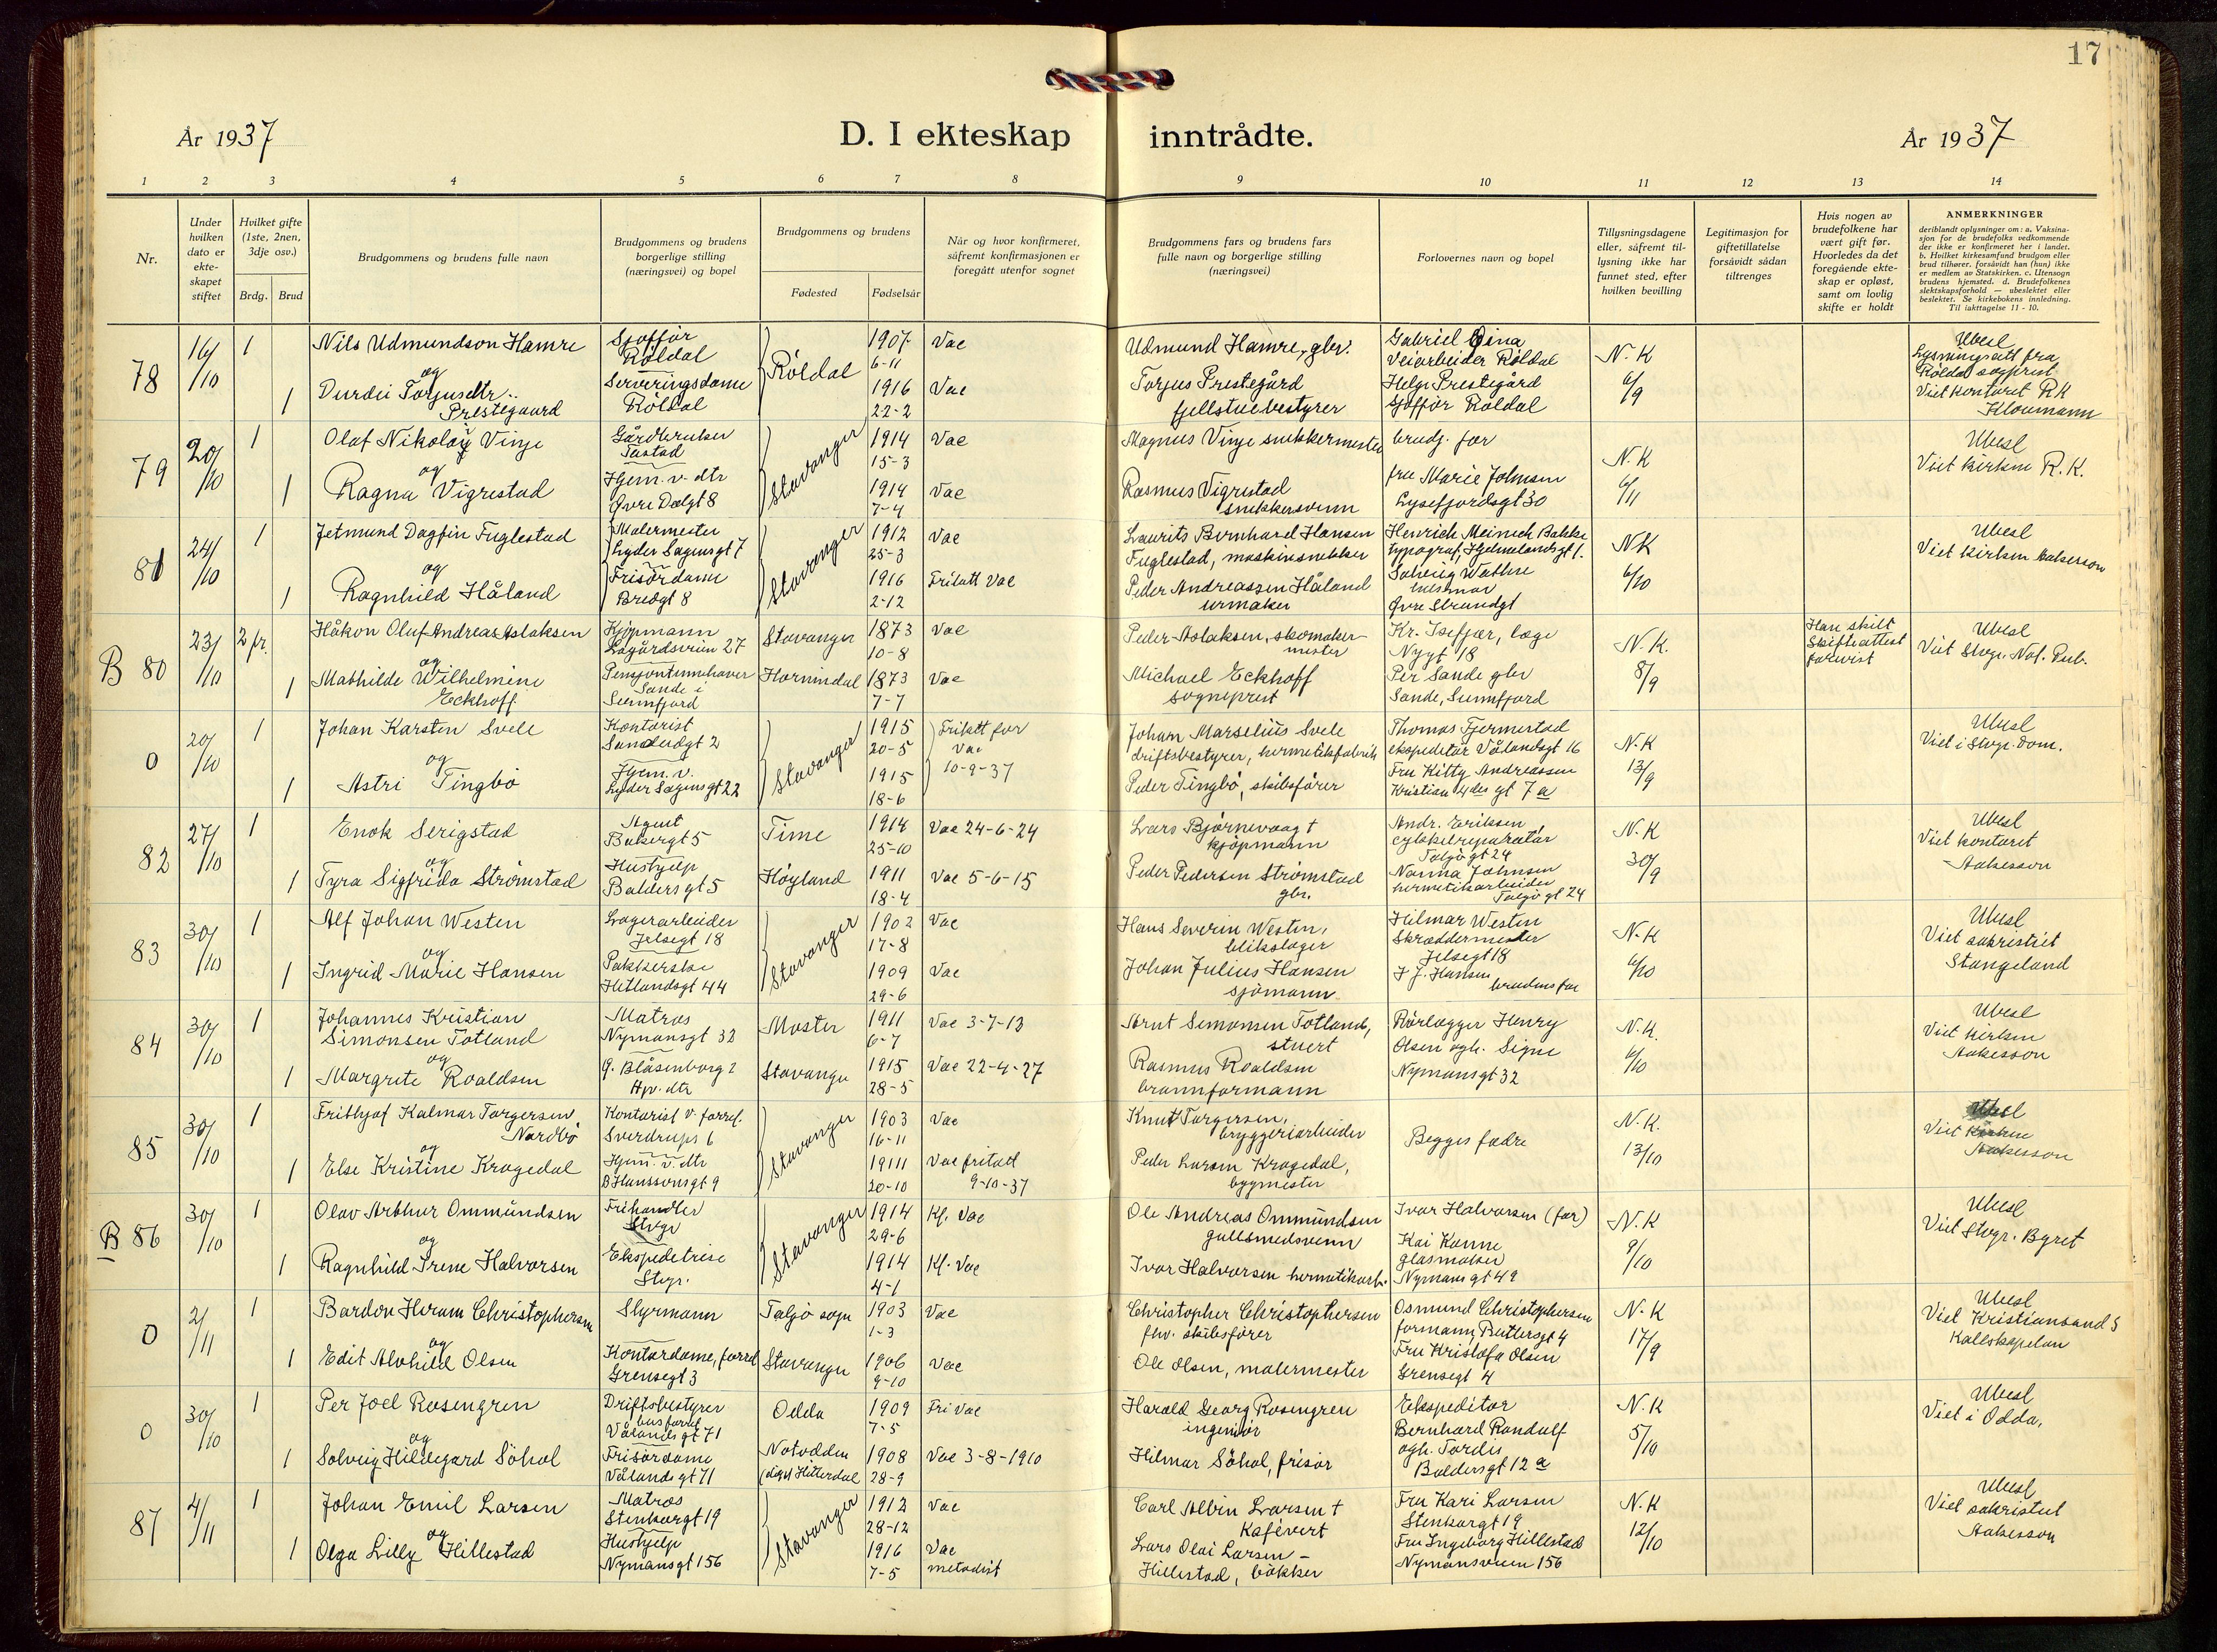 17
År 1937
D. I ekteskap inntrådte.
År 1937
1 2 3 4 5 6 7 8 9 10 11 12 13 14
Nr.
Under hvilken dato er ekte-skapet stiftet
Hvilket gifte (1ste, 2nen, 3dje osv.)
Brdg. Brud
Brudgommens og brudens fulle navn
Brudgommens og brudens borgerlige stilling (næringsvei) og bopel
Brudgommens og brudens
Fødested
Fødselsår
Når og hvor konfirmeret, såfremt konfirmasjonen er foregått utenfor sognet
Brudgommens fars og brudens fars fulle navn og borgerlige stilling (næringsvei)
Forlovernes navn og bopel
Tillysningsdagene eller, såfremt til-lysning ikke har funnet sted, efter hvilken bevilling
Legitimasjon for giftetillatelse forsåvidt sådan tiltrenges
Hvis nogen av brudefolkene har vært gift før. Hvorledes da det foregående ekte-skap er opløst, samt om lovlig skifte er holdt
ANMERKNINGER
deriblandt oplysninger om: a. Vaksina-sjon for de brudefolks vedkommende der ikke er konfirmeret her i landet. b. Hvilket kirkesamfund brudgom eller brud tilhører, forsåvidt han (hun) ikke er medlem av Statskirken. c. Utensogn brudens hjemsted. d. Brudefolkenes slektskapsforhold — ubeslektet eller beslektet. Se kirkebokens innledning. Til iakttagelse 11 - 10.
78 16/10 1 Nils Udmundson Hamre Sjåffør Röldal Röldal 1907 6-11 Vac Udmund Hamre, gbr. Gabriel Veiarbeider Röldal N.K 6/9 Ubesl Lysningsatt fra Röldal sogprest Viet kontoret RK Kloumann
og
1 Durdei Torjusdtr. Prestegaard Serveringsdame Röldal 1916 22-2 Vac Torjus Prestegård fjellstuebestyrer Helge Prestegård Sjåffør Röldal
79 20/10 1 Olaf Nikolay Vinje Gårdbruker Tastad Stavanger 1914 15-3 Vac Magnus Vinje snekkermester brudg. far N.K 6/11 Ubesl Viet kirken R.K.
og
1 Ragna Vigrestad Hjem. v. dtr Øvre Dalgt 8 1914 7-4 Vac Rasmus Vigrestad snekkersvenn fru Marie Johnsen Lysefjordsgt 30
81 24/10 1 Jetmund Dagfin Fuglestad Malermester Lyder Sagensgt 7 Stavanger 1912 25-3 Vac Laurits Bernhard Hansen Fuglestad, maskinsnekker Henrich Meinich Bakke typograf, Hjelmelandsgt 1. NK 6/10 Ubesl Viet kirken Aakesson
og
1 Ragnhild Håland Frisördame Bredgt 8 1916 2-12 Fritatt Vac Peder Andreassen Håland urmaker Solveig Wathne husmor Øvre Strandgt
B 80 23/10 2 fr. Håkon Oluf Andreas Aslaksen Kjøpmann Lagårdsveien 27 Stavanger 1873 10-8 Vac Peder Aslaksen, skomaker-mester Kr. Isefjær, læge Nygt 18 N.K. 8/9 Han skilt Skifteattest forevist Ubesl Viet Stvgr. Not. Pub.
og
1 Mathilde Wilhelmine Eckhoff. Pensjonatinnehaver Sande i Sunnfjord Hornindal 1873 7-7 Vac Michael Eckhoff sogneprest Per Sande gbr Sande, Sunnfjord
0 20/10 1 Johan Karsten Svele Kontorist Sandeidgt 2 Stavanger 1915 20-5 Fritatt for Vac 10-9-37 Johan Marselius Svele driftsbestyrer, hermetikfabrik Thomas Fjermestad ekspeditør Vålandsgt 16 N.K 13/9 Ubesl Viet i Stvgr. Dom.
og
1 Astri Tingbö Hjem. v. Lyder Sagensgt 22 1915 18-6 Peder Tingbö, skibsfører Fru Kitty Andreassen Kristian 4des gt 7 a
82 27/10 1 Enok Serigstad Agent Bakergt 5 Time 1914 25-10 Vac 24-6-24 Lars Bjørnevaag † kjöpmann Andr. Eriksen, cykkelreparatør Talgö gt 24 N.K 30/9 Ubesl Viet kontoret Aakesson
og
1 Tyra Sigfrida Strömstad Hushjelp Baldersgt 5 Höyland 1911 18-4 Vac 5-6-15 Peder Pedersen Strömstad gbr. Nanna Johnsen hermetikarbeider Talgö gt 24
83 30/10 1 Alf Johan Westen Lagerarbeider Jelsegt 18 Stavanger 1902 17-8 Vac Hans Severin Westen, blikslager Hilmar Westen Skræddermester Jelsegt 18 N.K 6/10 Ubesl Viet sakristiet Stangeland
og
1 Ingrid Marie Hansen Pakkerske Hetlandsgt 44 1909 29-6 Vac Johan Julius Hansen sjömann J.J. Hansen brudens far
84 30/10 1 Johannes Kristian Simonsen Totland Matros Nymansgt 32 Moster 1911 6-7 Vac 3-7-13 Arnt Simonsen Totland, stuert Rørlegger Henry Olsen ogh. Signe Nymansgt 32 N.K. 6/10 Ubesl Viet kirken Aakesson
og
1 Margrete Roaldsen Ø. Blåsenborg 2 Hv. dtr Stavanger 1915 28-5 Vac 22-4-27 Rasmus Roaldsen brannformann
85 30/10 1 Frithjof Kalmar Torgersen Nordbö Kontorist v. forref. Sverdrups 6 Stavanger 1903 16-11 Vac Knut Torgersen, bryggeriarbeider Begges fædre N.K. 13/10 Ubesl Viet kirken Aakesson
og
1 Else Kristine Kragedal Hjem. v. dtr B Hanssonsgt 9 1911 20-10 Vac fritatt 9-10-37 Peder Larsen Kragedal, bygmester
B 86 30/10 1 Olav Arthur Ommundsen Frihandler Stvgr Stavanger 1914 29-6 Kf. Vac Ole Andreas Ommundsen gullsmedsvenn Ivar Halvorsen (far) N.K 9/10 Ubesl Viet Stvgr. Byret
og
1 Ragnhild Irene Halvorsen Ekspeditrise Stvgr. 1914 4-1 Kf. Vac Ivar Halvorsen hermetikarb. Kai Kanne glasmaker Nymansgt 49
0 2/11 1 Bardon Hiram Christophersen Styrmann Talgjö sogn 1903 1-3 Vac Christopher Christophersen fhv. skibsfører Osmund Christophersen formann Ruttersgt 4 N.K 17/9 Ubesl Viet Kristiansand S Kallskapelan
og
1 Edit Alvhild Olsen Kontordame, forref Grensegt 3 Stavanger 1906 9-10 Vac Ole Olsen, malermester Fru Kristofa Olsen Grensegt 4
0 30/10 1 Per Joel Rosengren Driftsbestyrer Vålandsgt 71 Odda 1909 7-5 Fri Vac Harald Georg Rosengren ingeniör Ekspeditör Bernhard Randulf ogh. Tordis Baldersgt 12 a N.K 5/10 Ubesl Viet i Odda,
og
1 Solveig Hildegard Söhol Frisördame Vålandsgt 71 Notodden Hitterdal 1908 28-9 Vac 3-8-1910 Hilmar Söhol, frisör
87 4/11 1 Johan Emil Larsen Matros Stenkargt 19 Stavanger 1912 28-12 Vac Carl Alvin Larsen † Kafévert Fru Kari Larsen Stenkargt 19 N.K 12/10 Ubesl Viet sakristiet Aakesson
og
1 Olga Lilly Hillestad Hushjelp Nymansgt 156 1916 7-5 Vac metodist Lars Olai Larsen - Hillestad, bökker Fru Ingeborg Hillestad Nymansveien 156